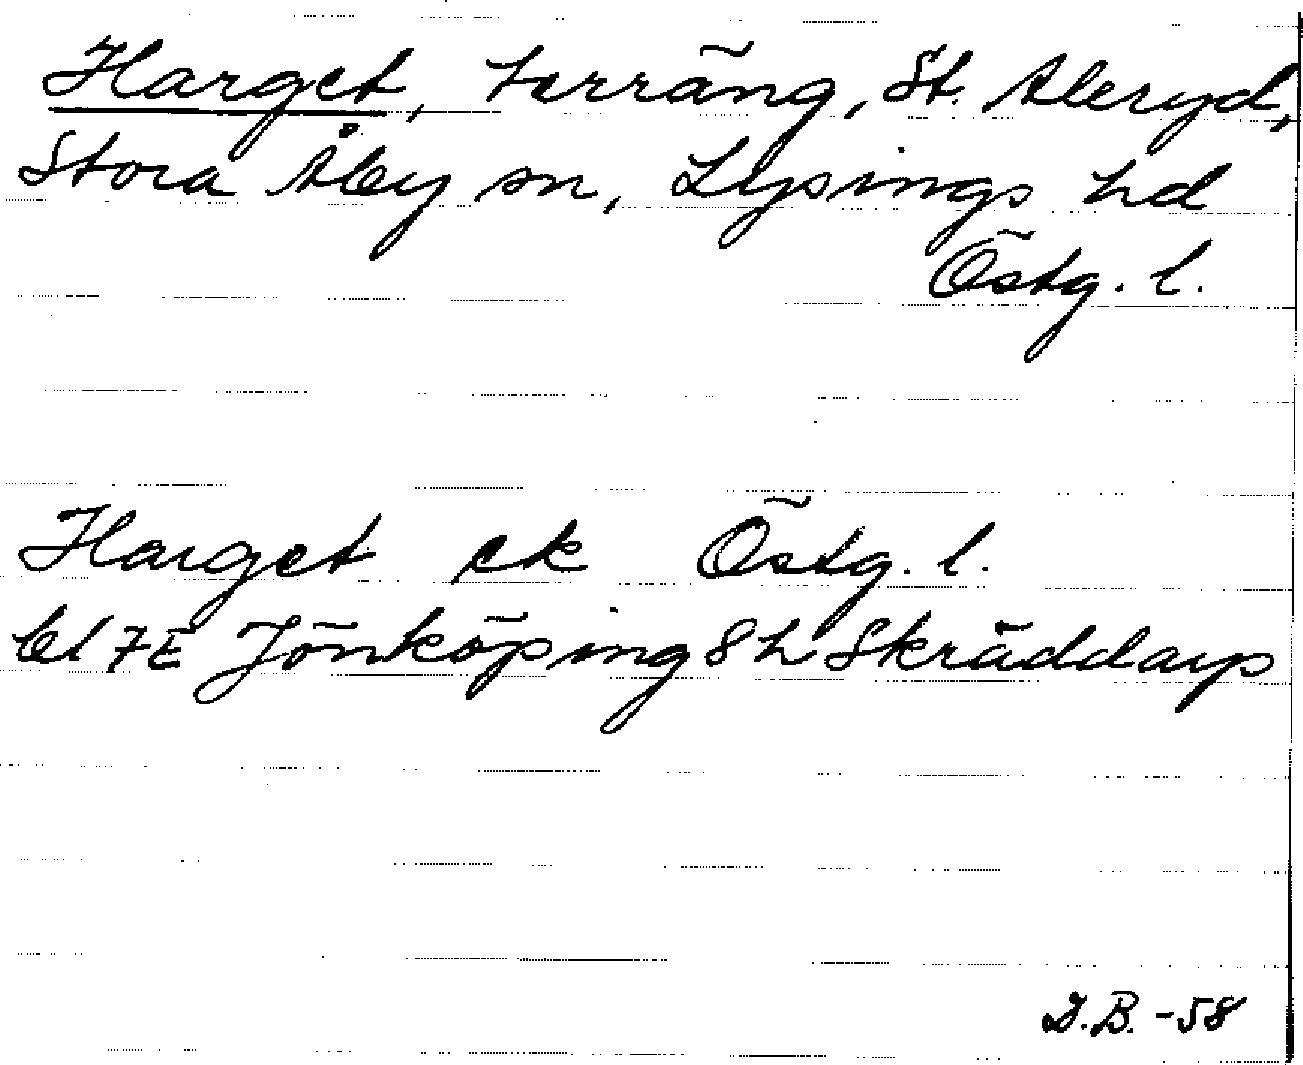 Harget, terräng, St. Aleryd,
Stora Åby sn, Lysings hd
Östg. l.
Harget ek Östg. l.
bl 7E Jönköping 8h Skräddarp
D.B. -58